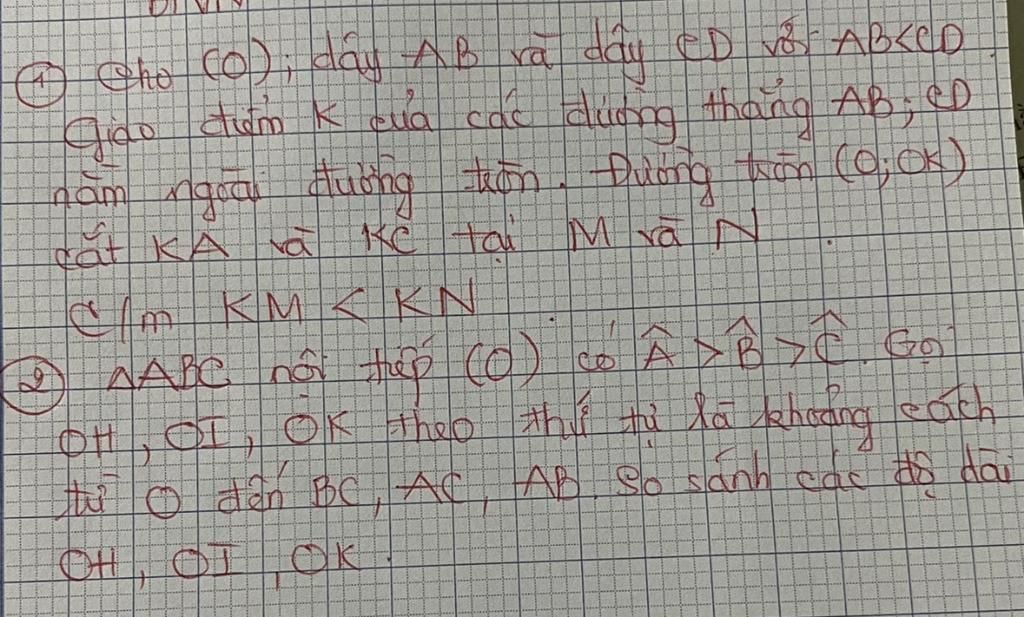 ① Cho (O); dây AB và dây CD với AB<CD.
Giao điểm K của các đường thẳng AB; CD
nằm ngoài đường tròn. Đường tròn (O; OK)
cắt KA và KC tại M và N.
C/m KM < KN
② ΔABC nội tiếp (O) có Â > B̂ > Ĉ. Gọi
OH, OI, OK theo thứ tự là khoảng cách
từ O đến BC, AC, AB. So sánh các độ dài
OH, OI, OK.